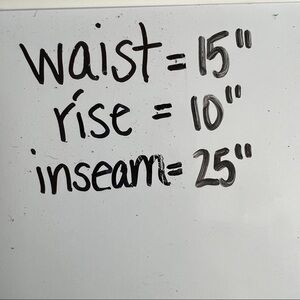 waist = 15"
rise = 10"
inseam = 25"